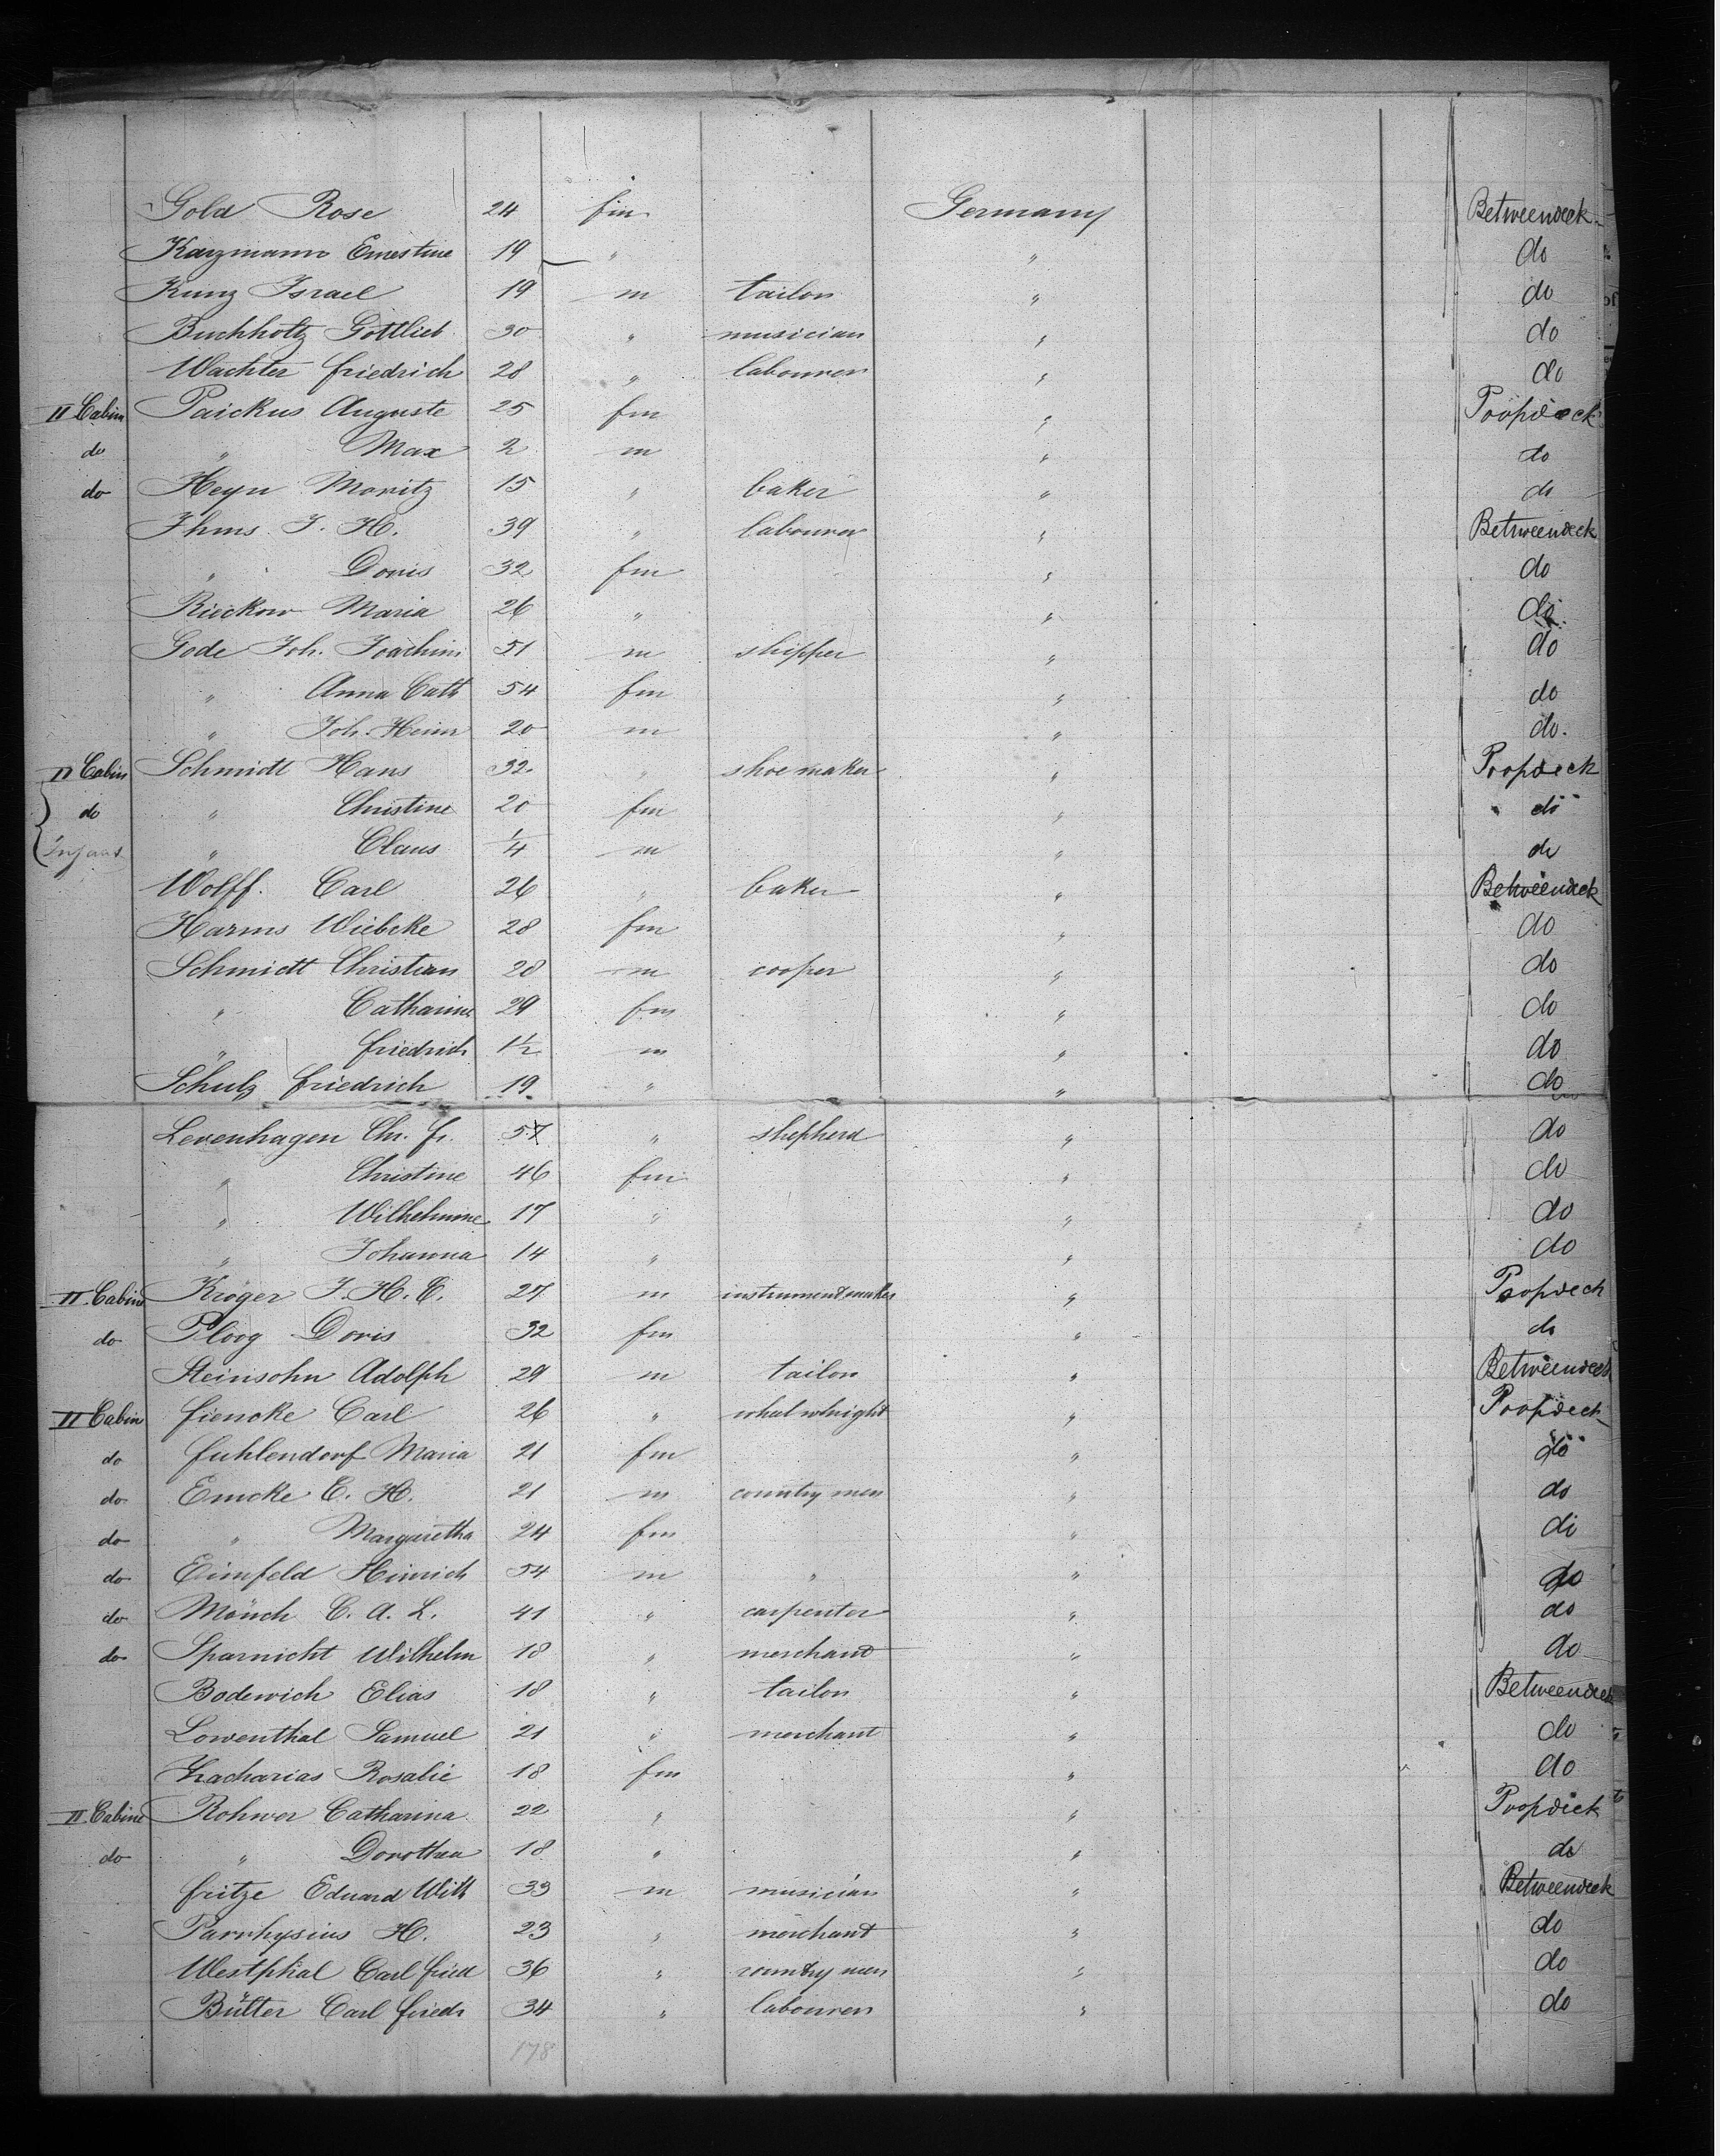 Gold Rose 24 fm Germany Betweendeck
Kazmann Ernestine 19 " " do
Kunz Israel 19 m tailor " do
Buchholtz Gottlieb 30 " musician " do
Wachter Friedrich 28 " labourer " do
II Cabin Paickus Auguste 25 fm " Poopdeck
do " Max 2 m " do
do Heyn Moritz 15 " baker " do
Ihms J. H. 39 " labourer " Betweendeck
" Doris 32 fm " do
Rieckow Maria 26 " " do
Gode Joh. Joachim 51 m shipper " do
" Anna Cath 54 fm " do
" Joh. Heinr 20 m " do.
II Cabin Schmidt Hans 32 " shoe maker " Poopdeck
do " Christine 20 fm " do
Infant " Claus 1/4 m " do
Wolff. Carl 26 " baker " Betweendeck
Harms Wiebcke 28 fm " do
Schmidt Christian 28 m cooper " do
" Catharine 29 fm " do
" Friedrich 1 1/2 m " do
Schulz Friedrich 19 " " do
Levenhagen Chr. Fr. 57 " shepherd " do
" Christine 46 fm " do
" Wilhelmine 17 " " do
" Johanna 14 " " do
II Cabin Kröger J. H. C. 27 m instrumentmaker " Poopdeck
do Ploog Doris 32 fm " do
Steinsohn Adolph 29 m tailor " Betweendeck
II Cabin Fiencke Carl 26 " whulwhright " Poopdeck
do Fuhlendorf Maria 21 fm " do
do Emcke C. H. 21 m country men " do
do " Margaretha 24 fm " do
do Eimfeld Hinrich 54 m " " do
do Mönch C. A. L. 41 " carpenter " do
do Sparnicht Wilhelm 18 " merchant " do
Bodewich Elias 18 " tailor " Betweendeck
Lowenthal Samuel 21 " merchant " do
Zacharias Rosalie 18 fm " do
II Cabine Rohwer Catharina 22 " " Poopdeck
do " Dorothea 18 " " do
Fritze Eduard Wilh 33 m musician " Betweendeck
Parrhysius H. 23 " merchant " do
Westphal Carl Fried 36 " country men " do
Bülter Carl Friedr 34 " labourer " do
178